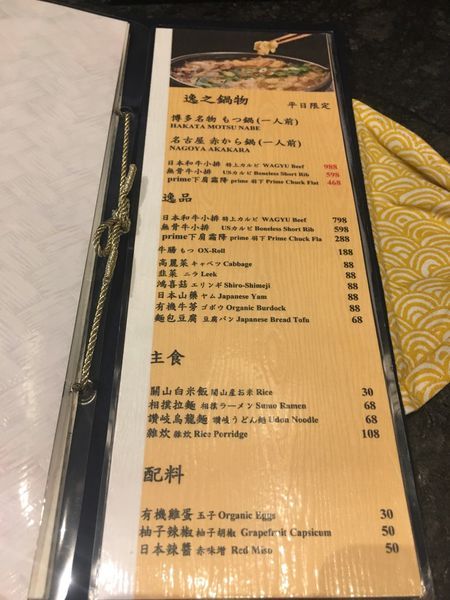 逸之鍋物 平日限定
博多名物 もつ鍋(一人前)
HAKATA MOTSU NABE
名古屋 赤から鍋(一人前)
NAGOYA AKAKARA
日本和牛小排 特上カルビ WAGYU Beef 988
無骨牛小排 USカルビ Boneless Short Rib 598
prime下肩霜降 prime 羽下 Prime Chuck Flat 468
逸品
日本和牛小排 特上カルビ WAGYU Beef 798
無骨牛小排 USカルビ Boneless Short Rib 598
prime下肩霜降 prime 羽下 Prime Chuck Fla 288
牛腸 もつ OX-Roll 188
高麗菜 キャベツ Cabbage 88
韭菜 ニラ Leek 88
鴻喜菇 エリンギ Shiro-Shimeji 88
日本山藥 ヤム Japanese Yam 88
有機牛蒡 ゴボウ Organic Burdock 88
麵包豆腐 豆腐パン Japanese Bread Tofu 68
主食
關山白米飯 関山産お米 Rice 30
相撲拉麵 相撲ラーメン Sumo Ramen 68
讚岐烏龍麵 讃岐うどん麺 Udon Noodle 68
雜炊 雑炊 Rice Porridge 108
配料
有機雞蛋 玉子 Organic Eggs 30
柚子辣椒 柚子胡椒 Grapefruit Capsicum 50
日本辣醬 赤味増 Red Miso 50